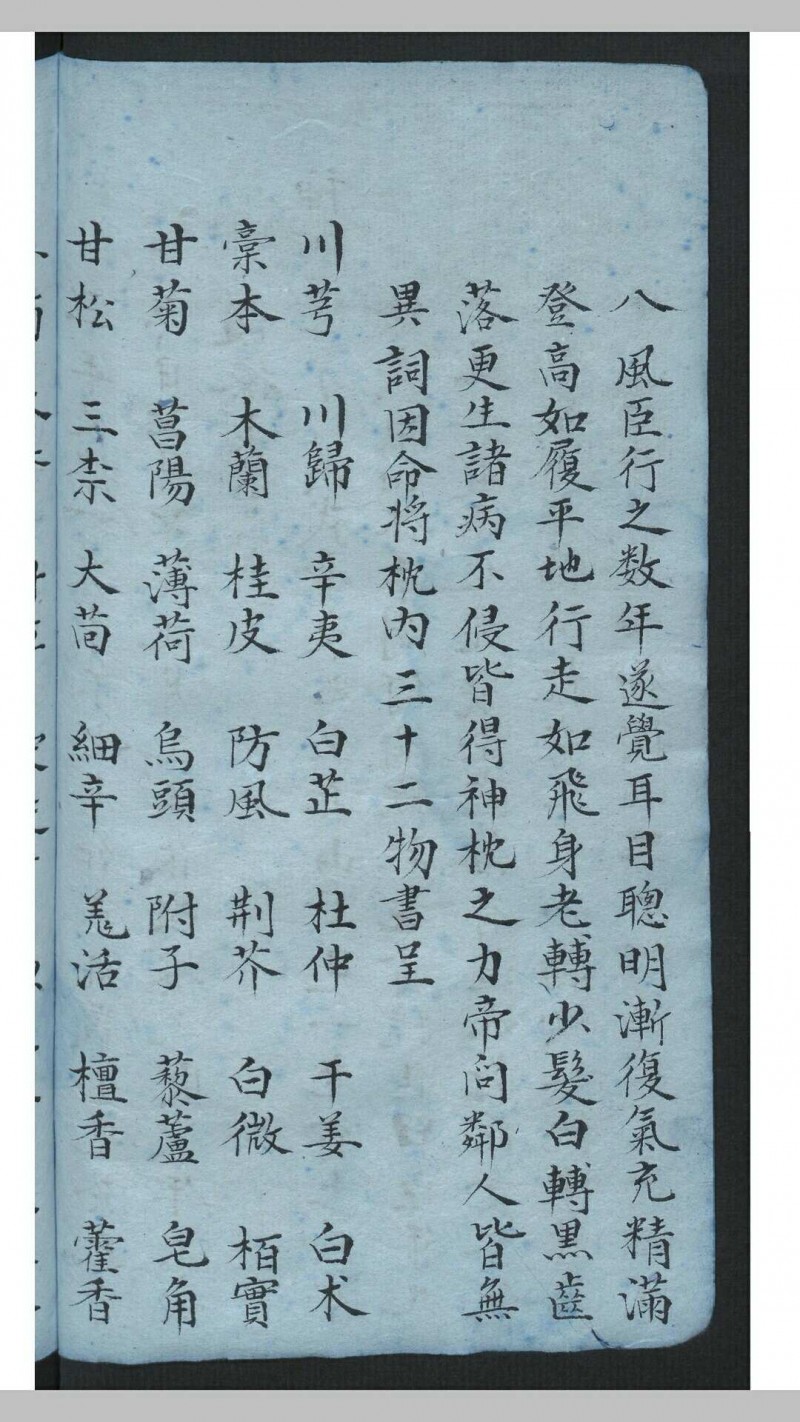 八風臣行之数年遂覺耳目聰明漸復氣充精滿
登高如履平地行走如飛身老轉少髮白轉黒齒
落更生諸病不侵皆得神枕之力帝问鄰人皆無
異詞因命将枕内三十二物書呈
川芎 川歸 辛夷 白芷 杜仲 干姜 白术
槀本 木蘭 桂皮 防風 荆芥 白微 栢實
甘菊 菖陽 薄荷 烏頭 附子 藜蘆 皂角
甘松 三柰 大茴 細辛 羌活 檀香 藿香